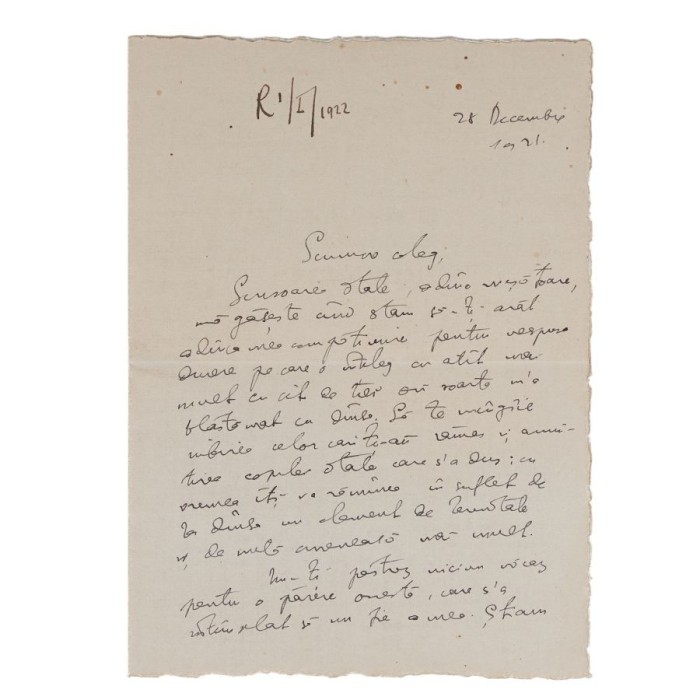 R 1/I/1922
28 Decembrie
1921.
Scumpe coleg,
Scrisoarea d-tale,
mă găsește când stam să-ți arăt
adînca mea compătimire pentru
durere pe care o înțeleg cu atît mai
mult cu cît de trei ori soarta m'a
blastemat cu dînsa. Să te mîngîie
iubirea celor cari ți-au rămas și amin-
tirea copilei d-tale care s'a dus; cu
vremea îți va rămînea în suflet de
la dînsa un element de bunătate
și de milă omenească mai mult.
Nu-ți păstrez niciun
pentru o părere onestă, care s'a
întîmplat să nu fie a mea. Știam